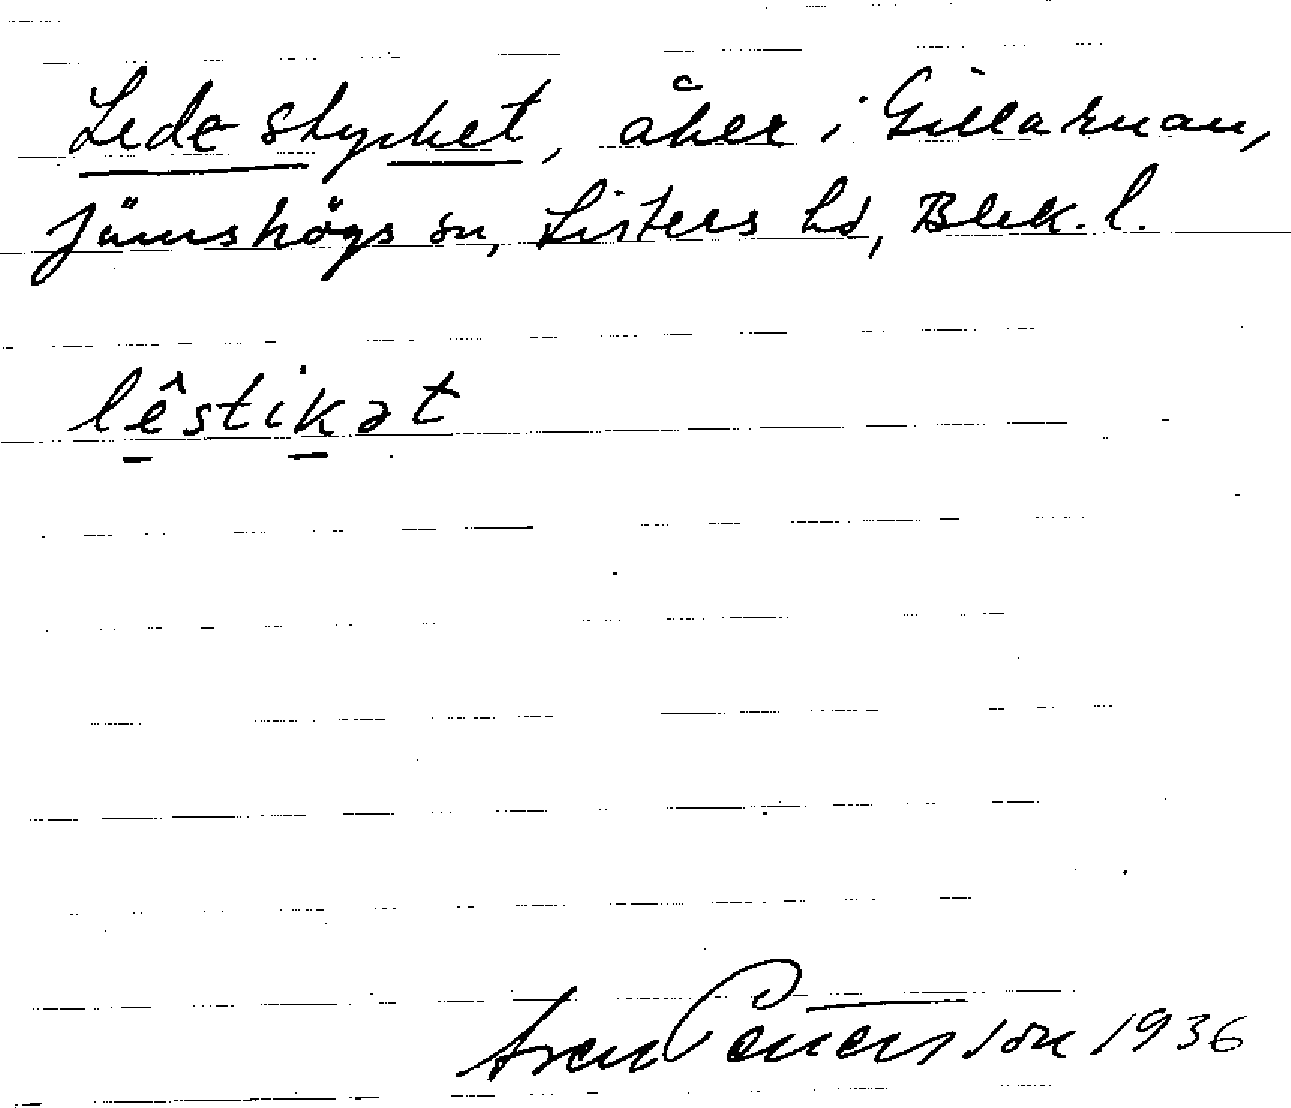 Ledestycket, åker i Gillaruan,
Jämshögs sn, Listers hd, Blek. l.
lêstikət
Sven Petersson 1936